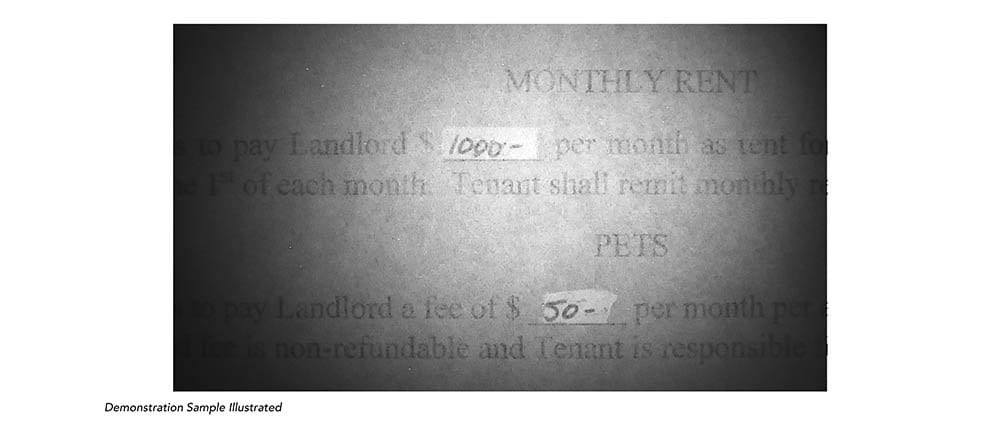 MONTHLY RENT
to pay Landlord $ 1000- per month as rent fo
e 1st of each month. Tenant shall remit monthly re
PETS
to pay Landlord a fee of $ 50- per month per
fee is non-refundable and Tenant is responsible
Demonstration Sample Illustrated